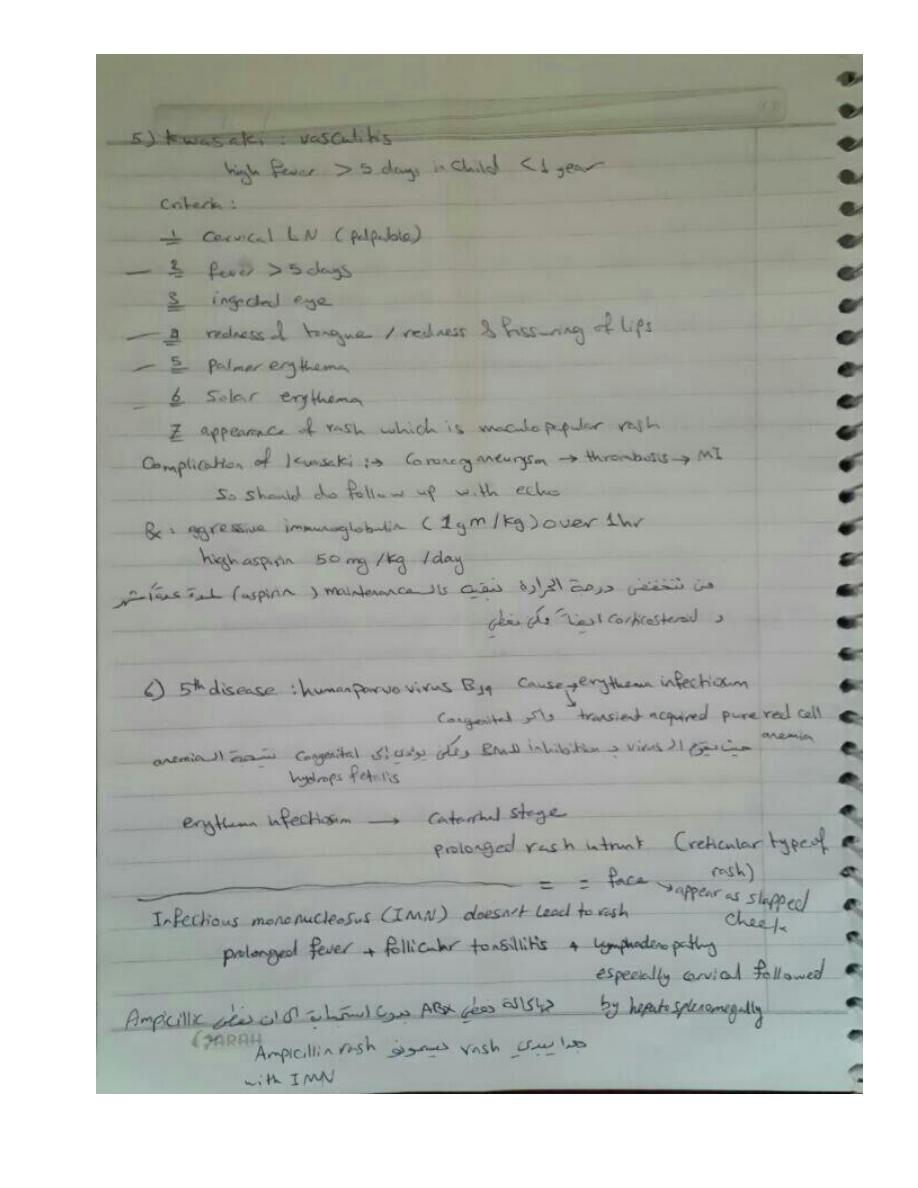 5) Kwasaki : vasculitis
high fever > 5 days in child < 1 year
Criteria :
1 cervical LN (palpable)
— 2 fever > 5 days
3 ingected eye
— 4 redness of tongue / redness & fissuring of lips
— 5 palmer erythema
— 6 Solar erythema
7 appearence of rash which is maculopopular rash
Complication of Kwasaki :→ Coronary aneurysm → thrombosis → MI
So should do follow up with echo
Rx : aggressive immunoglobulin (1 gm/kg) over 1hr
high aspirin 50 mg /kg /day
من تنخفض درجة الحرارة نبقيه عالـ maintenance (aspirin) لمدة
و corticosteroid ايضاً ممكن نعطي
6) 5th disease : human parvo virus B19 cause → erythema infectiosum
↳ transient acquired pure red cell anemia واكو Congenital
حيث يقوم الـ virus بـ inhibition BM وممكن يؤدي الى Congenital hydrops fetalis نتيجة الـ anemia
erythema infectiosum → Catarrhal stage
prolonged rash in trunk (reticular type of rash)
= = face → appear as slapped cheek
Infectious mononucleosus (IMN) doesn't lead to rash
prolonged fever + follicular tonsillitis + lymphadenopathy
especially cervical followed
by hepatosplenomegally
ABx بدون استجابة نعطي Ampicillin
rash Ampicillin rash
with IMN
SARAH